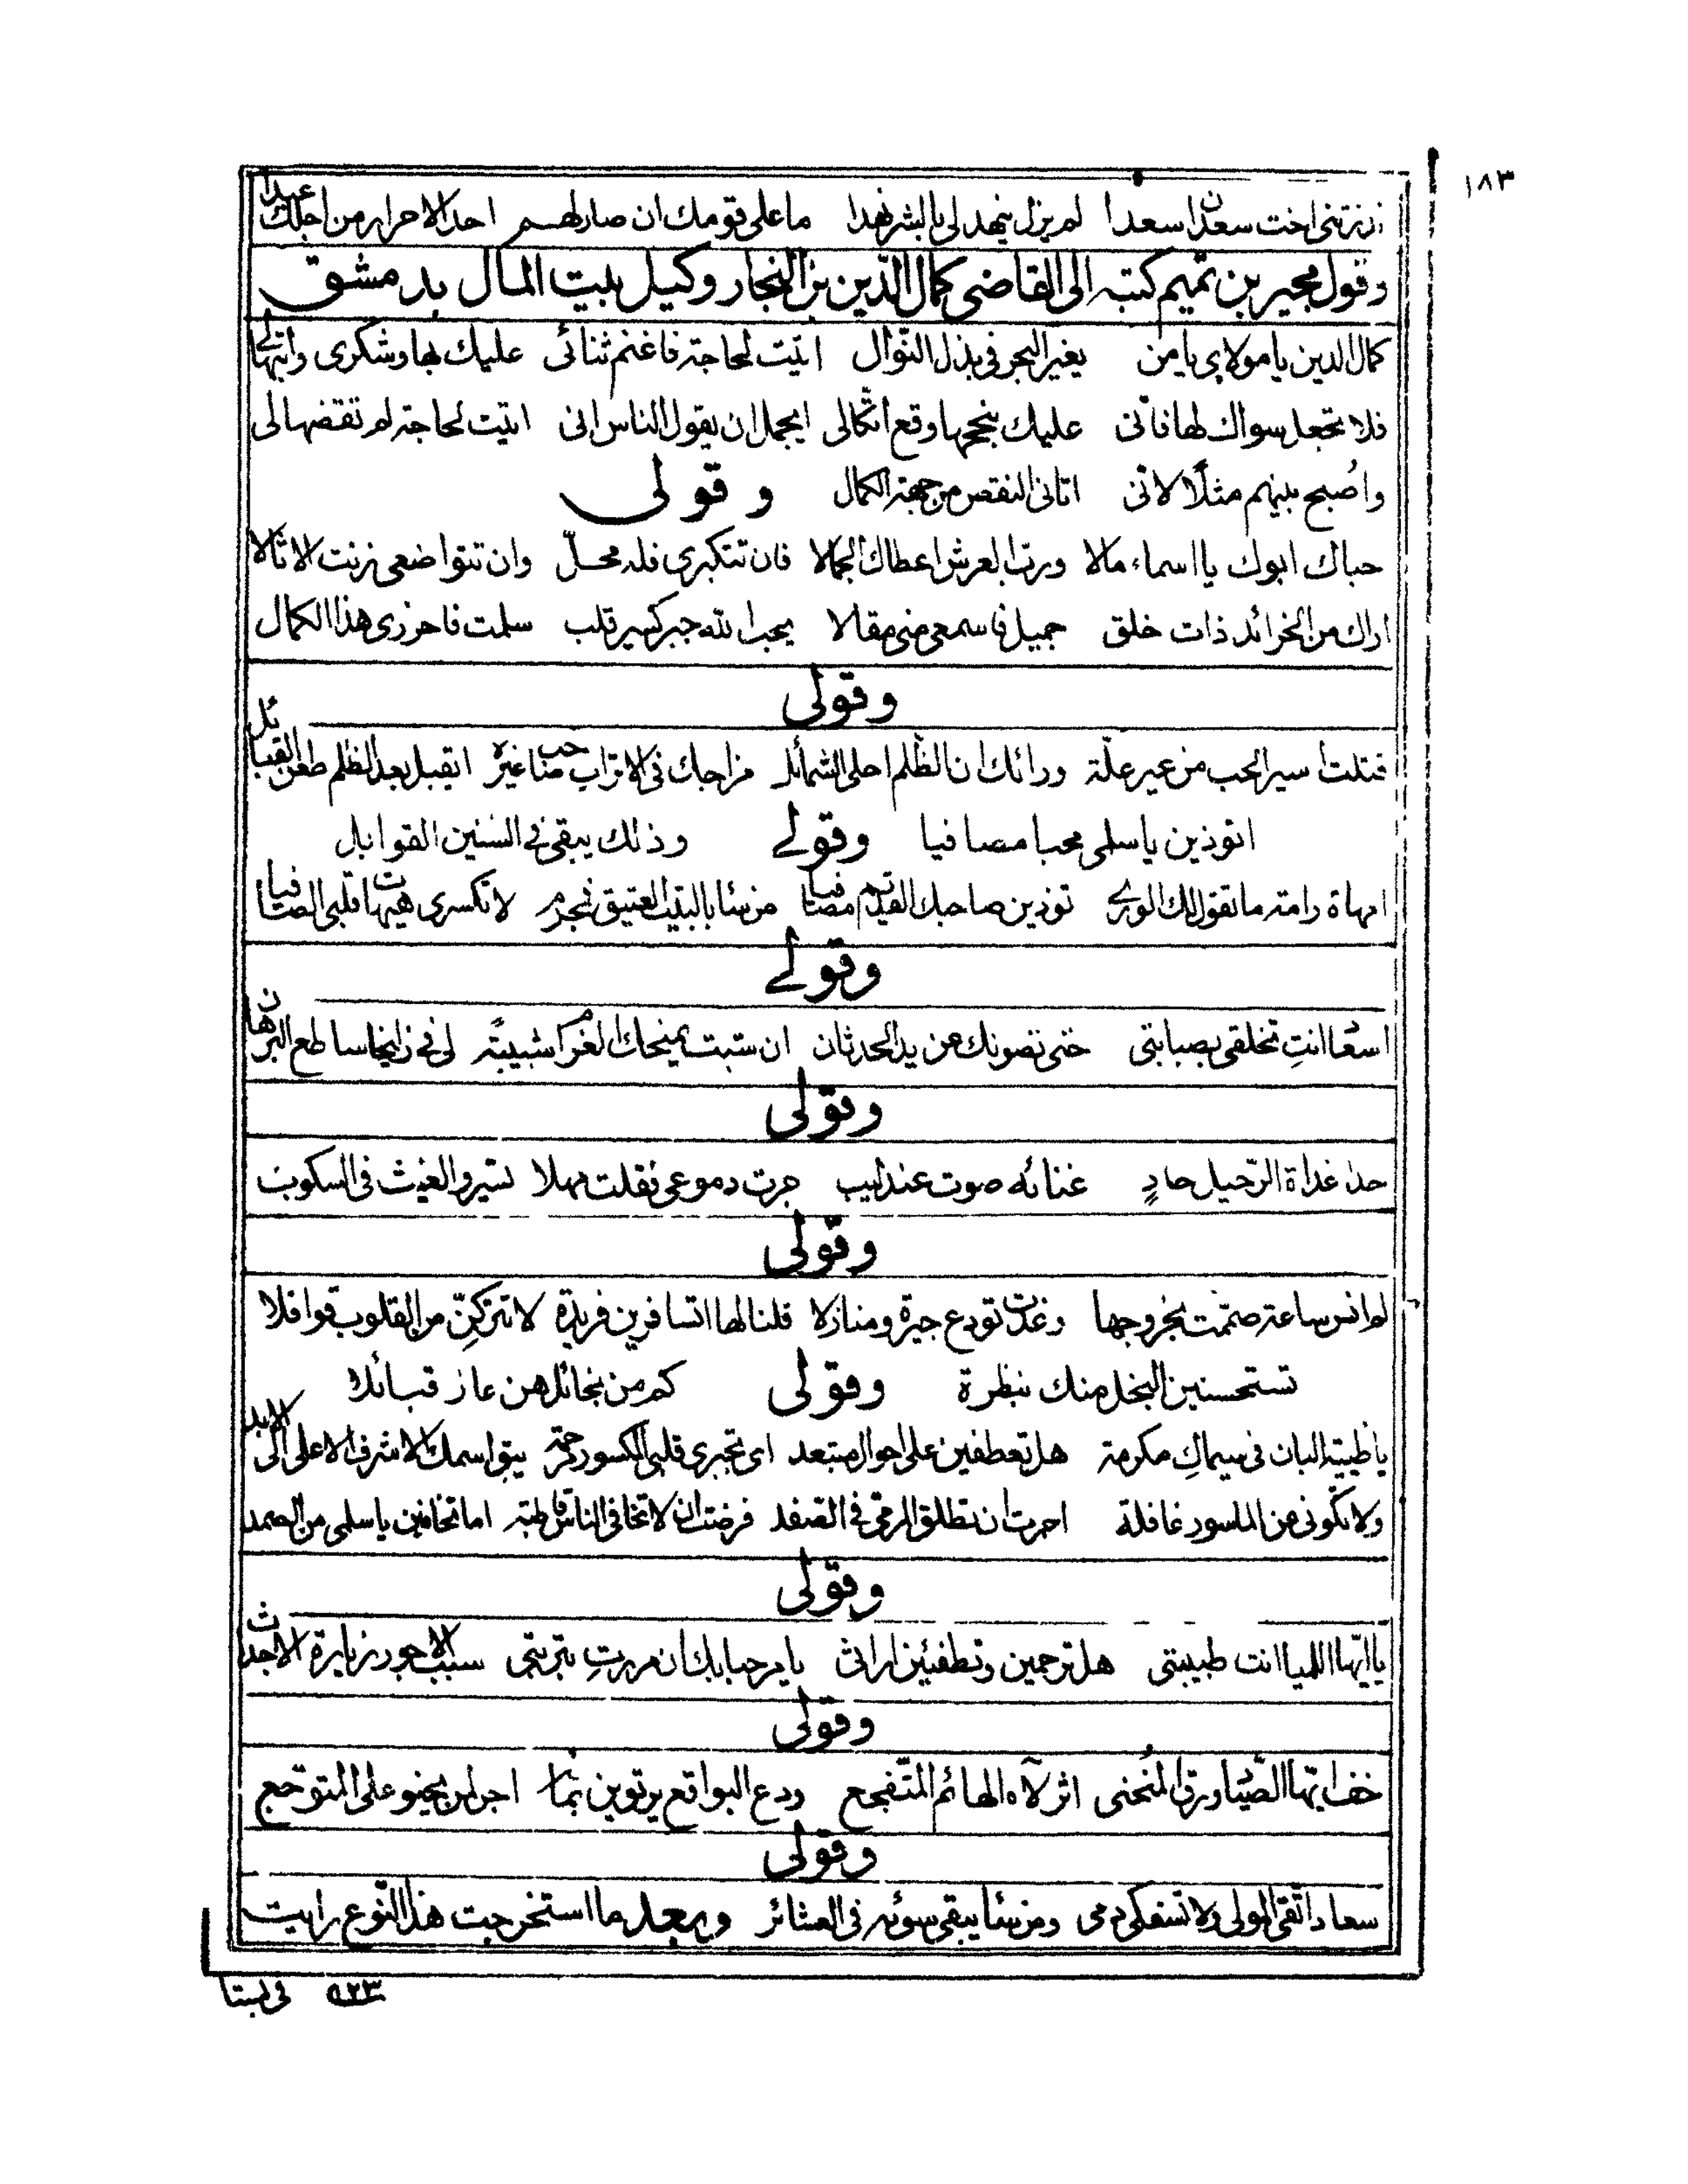 ١٨٣
زرتنى اخت سعدان اسعدا لم يزل ينهد لى بالبشر نهدا ما على قومك ان صار لهم احد الاحرار من اجلك عبدا
وقول مجير بن تميم كتبه الى القاضى كمال الدّين بن النجار وكيل بيت المال بدمشق
كمال الدين يا مولاى يا من يغير البحر فى بذل النّوال اتيت لحاجة فاغنم ثنائى عليك بها وشكرى وابتهالى
فلا تجعل سواك لها فانّى عليك بنجحها وقع اتّكالى ايجمل ان يقول الناس انى اتيت لحاجة لم تقضها لى
واُصبح بينهم مثلًا لانّى اتانى النقص من جهة الكمال وقولى
حباك ابوك يا اسماء مالا وربّ العرش اعطاك الجمالا فان تتكبرى فله محلّ وان تتواضعى زنت الاثالا
اراك من الخرائد ذات خلق جميل فاسمعى منى مقالا يحب الله جبر كسير قلب سلمت فاحرزى هذا الكمال
وقولى
قتلت اسير الحب من غير علّة ورائك ان الظّلم احلى الشمائل مزاجك فى الاتراب غيره ايقبل بعد الظلم طعن القبائل
اتوذين يا سلمى محبا مصافيا وقولے وذلك يبقى فى السنين القوابل
امهاة رامة ما تقول لك الورے توذين صاحبك القديم مصافيا من شا بالبيت العتيق لا تكسرى هيهات قلبى الصافيا
وقولے
اسعا انتِ تخلقى بصبابتى حتى تصونك عن يد الحدثان ان شبت يمنحك الغرام شبيبته لى فى زليخا ساطع البرهان
وقولى
حدا غداة الرّحيل حادٍ غنائه صوت عندليب جرت دموعى فقلت مهلا تسير والغيث فى السكوب
وقولى
لم انس ساعة صمّمت بخروجها وغدت تودع جيرة ومنازلا قلنا لها اتسافرين فريدة لا تتركنّ من القلوب قوافلا
تستحسنين البخل منك بنظرة وقولى كم من بخائل هن عاز قبائلا
يا ظبية البان فى سيماكِ مكرمة هل تعطفين على احوال مبتعد اى تجبرى قلبى المكسور رحمة يبق اسمك الاشرف الاعلى الى الابد
ولا تكونى عن الماسور غافلة احرت ان تطلق المرمى فى الصفد فرضت ان لا تخافى الناس قاطبة اما تخافين يا سلمى من الصمد
وقولى
يا ايّها اللميا انت طبيبتى هل ترحمين وتطفئين اراثى يا مرحبا بك ان مررتِ بتربتى سبب الاجور زيارة الاجداث
وقولى
خف ايّها الصيّاد ورق المنحنى اثر لآه الهائم المتّفجع ودع البواقع يرتوين اجر لمن يحنو على المتوجّع
وقولى
سعاد اتّقى المولى ولا تسفكى دمى ومن شا يبقى سوئه فى العشائر وبعد ما استخرجت هذا النّوع رايت
٥٢٣ فى بستا